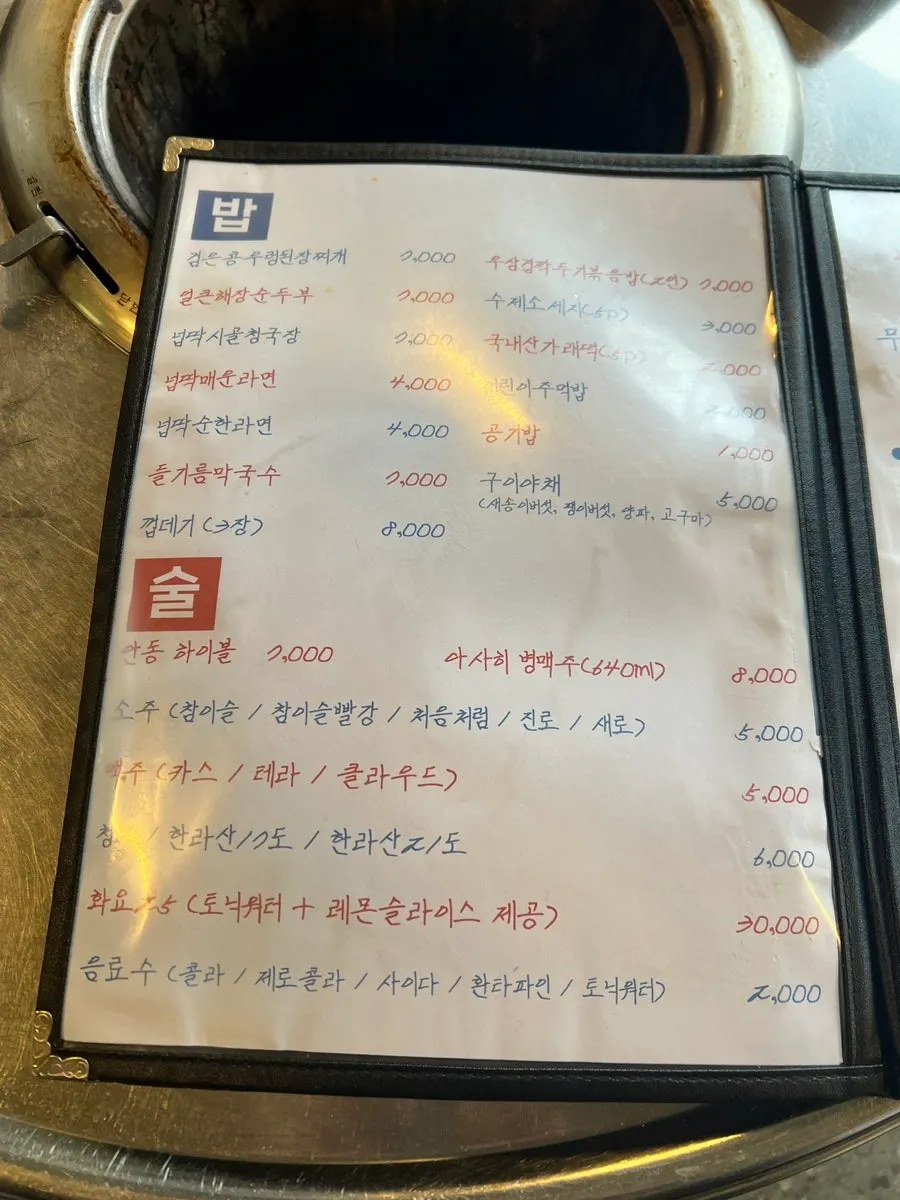 밥
검은콩 우렁된장찌개 7,000
얼큰해장순두부 7,000
넙딱시골청국장 7,000
넙딱매운라면 4,000
넙딱순한라면 4,000
들기름막국수 7,000
껍데기 (3장) 8,000
우삼겹깍두기볶음밥(2인) 7,000
수제소세지(5p) 3,000
국내산가래떡(5p) 2,000
어린이주먹밥 2,000
공기밥 1,000
구이야채 5,000
(새송이버섯, 팽이버섯, 양파, 고구마)
술
안동 하이볼 7,000 아사히 병맥주(640ml) 8,000
소주 (참이슬 / 참이슬빨강 / 처음처럼 / 진로 / 새로) 5,000
맥주 (카스 / 테라 / 클라우드) 5,000
/ 한라산17도 / 한라산21도 6,000
화요25 (토닉워터 + 레몬슬라이스 제공) 30,000
음료수 (콜라 / 제로콜라 / 사이다 / 환타파인 / 토닉워터) 2,000
무